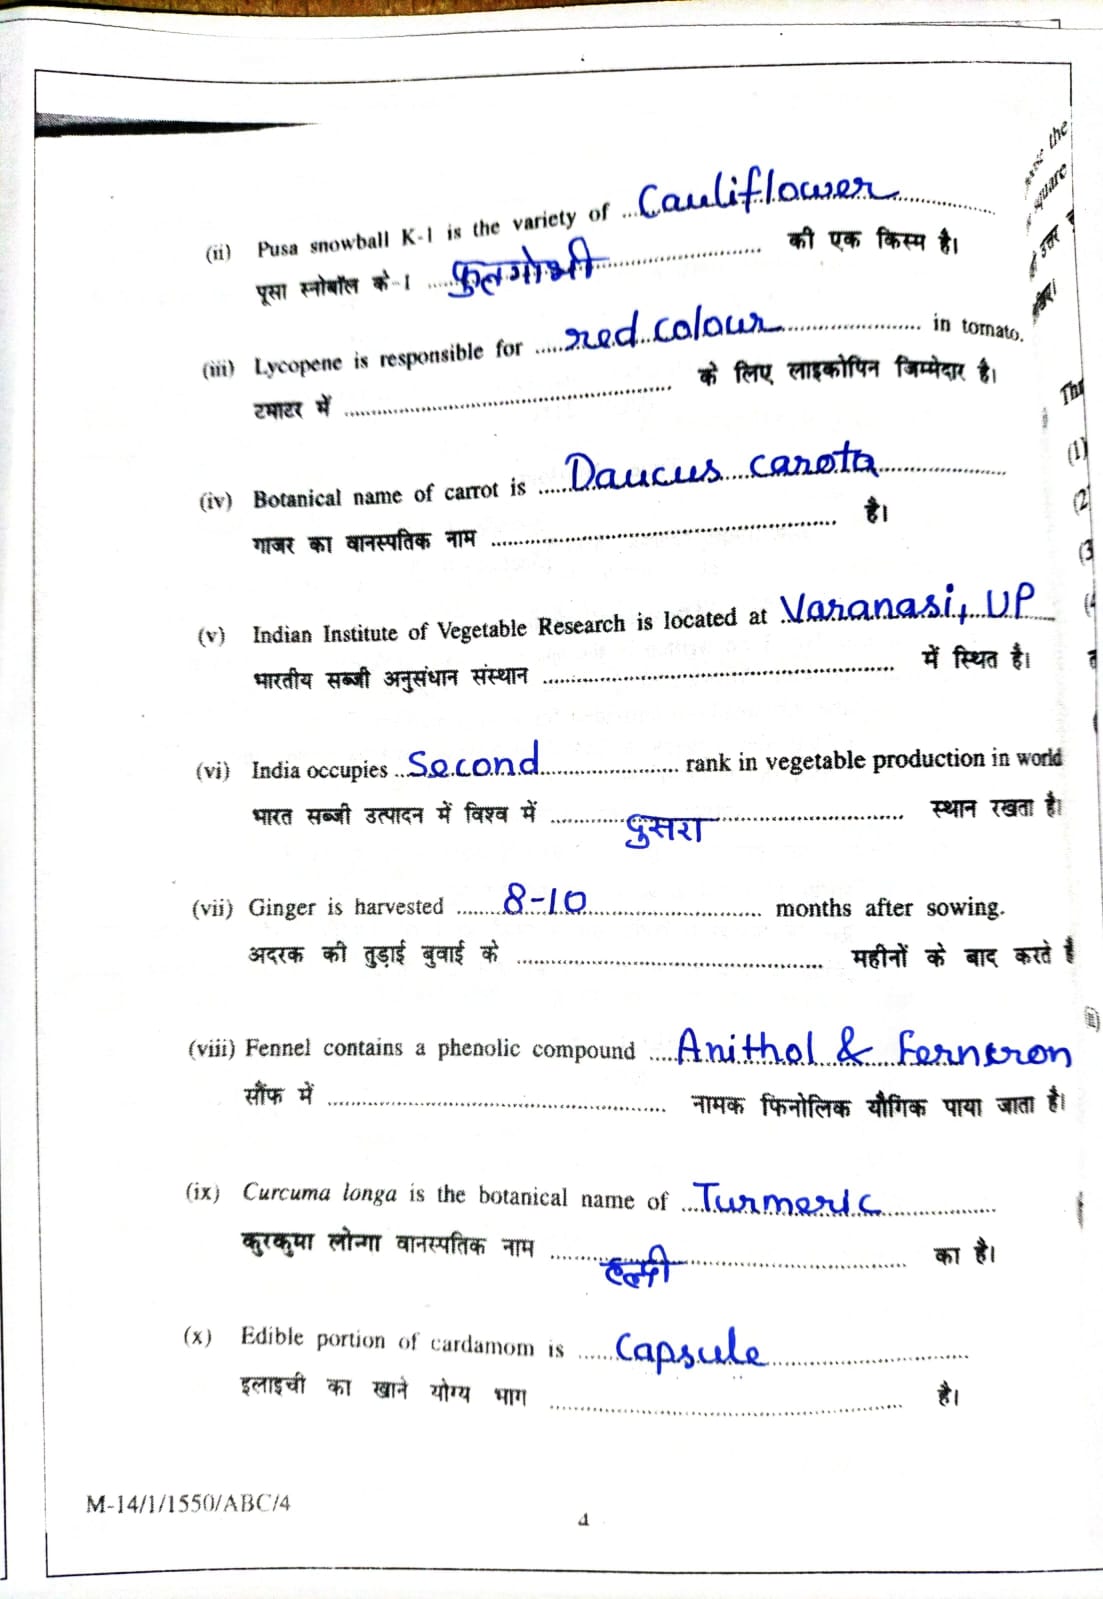 (ii) Pusa snowball K-1 is the variety of ...Cauliflower...
पूसा स्नोबॉल के-1 ...फुलगोभी... की एक किस्म है।
(iii) Lycopene is responsible for ...red colour... in tomato.
टमाटर में ... के लिए लाइकोपिन जिम्मेदार है।
(iv) Botanical name of carrot is ...Daucus carota...
गाजर का वानस्पतिक नाम ... है।
(v) Indian Institute of Vegetable Research is located at Varanasi, UP
भारतीय सब्जी अनुसंधान संस्थान ... में स्थित है।
(vi) India occupies ...Second... rank in vegetable production in world
भारत सब्जी उत्पादन में विश्व में ...दुसरा... स्थान रखता है।
(vii) Ginger is harvested ...8-10... months after sowing.
अदरक की तुड़ाई बुवाई के ... महीनों के बाद करते हैं
(viii) Fennel contains a phenolic compound ...Anithol &
सौंफ में ... नामक फिनोलिक यौगिक पाया जाता है।
(ix) Curcuma longa is the botanical name of ...Turmeric...
कुरकुमा लोन्गा वानस्पतिक नाम ...हल्दी... का है।
(x) Edible portion of cardamom is ...Capsule...
इलाइची का खाने योग्य भाग ... है।
M-14/1/1550/ABC/4
4
the
उत्तर
(1)
(2
(3